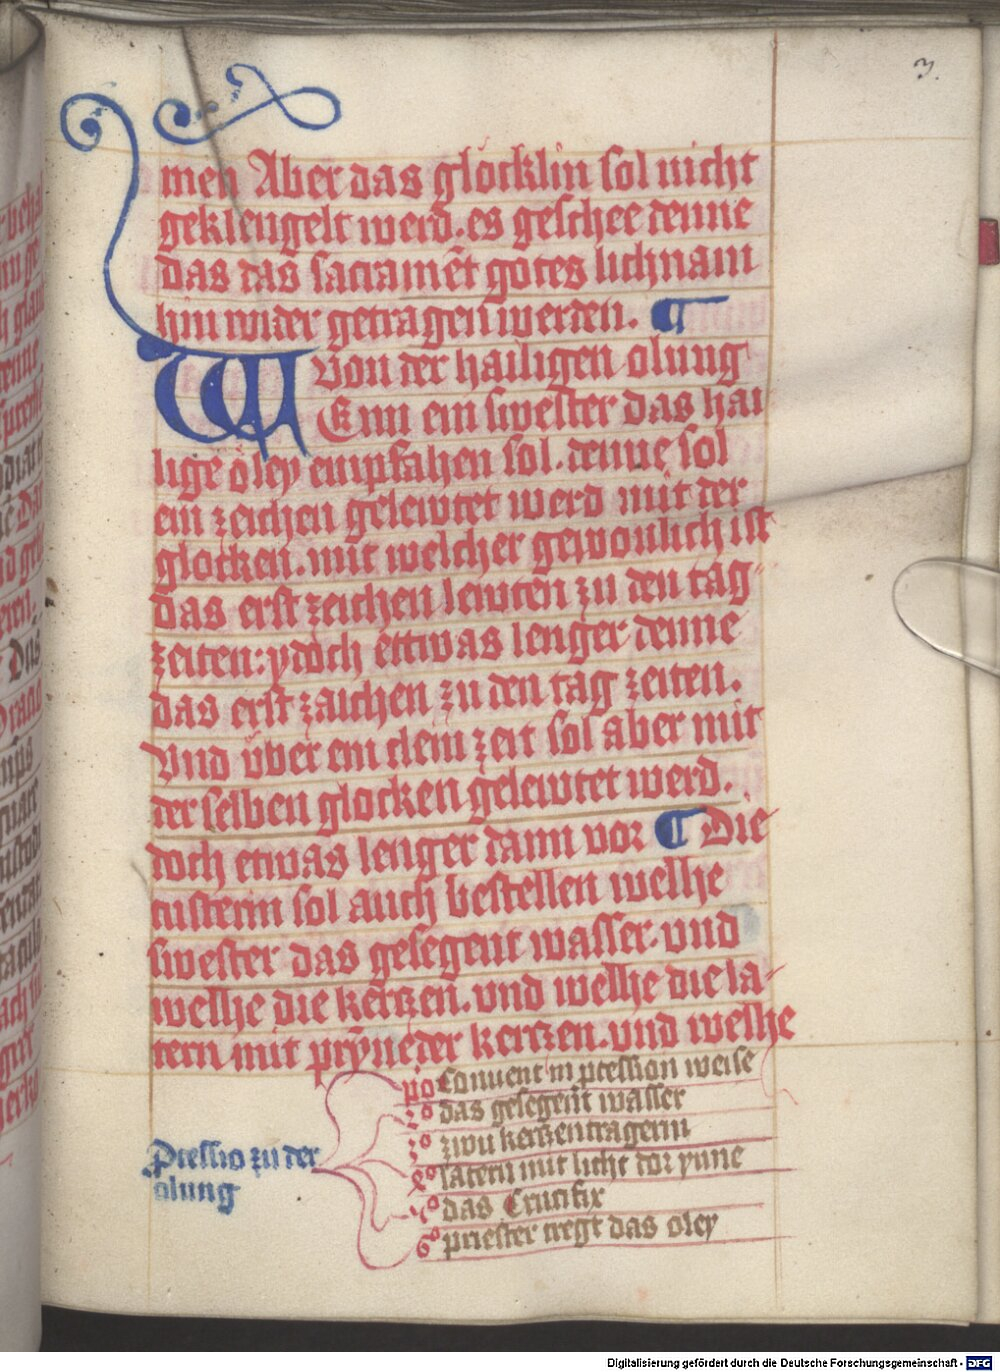 3.
men Aber das glöcklin sol nicht
geklengelt werd. es geschee denne
das das sacramēt gotes lichnam
hin wider getragen werden. ¶
Von der hailigen olung
WEnn ein swester das hai
lige öley empfahen sol. denne sol
ein zeichen gelewtet werd mit der
glocken. mit welcher gewonlich ist
das erst zeichen lewten zu den tag
zeiten: ydoch ettwas lenger denne
das erst zaichen zu den tag zeiten.
Vnd über ein clein zeit sol aber mit
der selben glocken gelewtet werd.
doch etwas lenger dann vor ¶ Die
custerin sol auch bestellen welhe
swester das gesegent wasser. vnd
welhe die kerczen. vnd welhe die la-
tern mit prÿneder kerczen. vnd welhe
pͦ Convent in pcession weise
2ͦ das gesegent wasser
3ͦ zwu kerczentragerin
Pcessio zu der
olung
4ͦ latern mit licht dor ynne
5ͦ das Crucifix
6ͦ priester tregt das oley
Digitalisierung gefördert durch die Deutsche Forschungsgemeinschaft - DFG